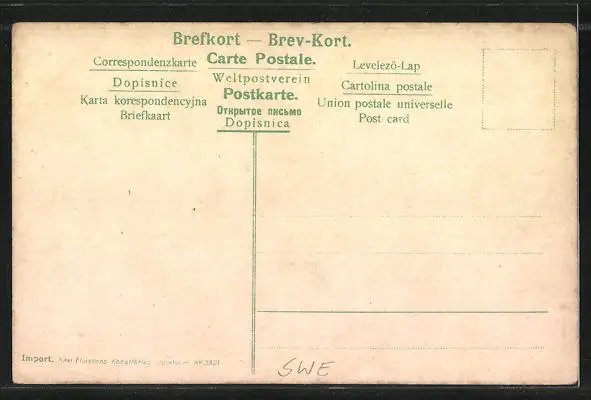 Brefkort — Brev-Kort.
Correspondenzkarte Carte Postale. Levelező-Lap
Dopisnice Weltpostverein Cartolina postale
Karta korespondencyjna Postkarte. Union postale universelle
Briefkaart Открытое письмо Post card
Dopisnica
Import. Axel Eliassons Konstförlag Stockholm
SWE